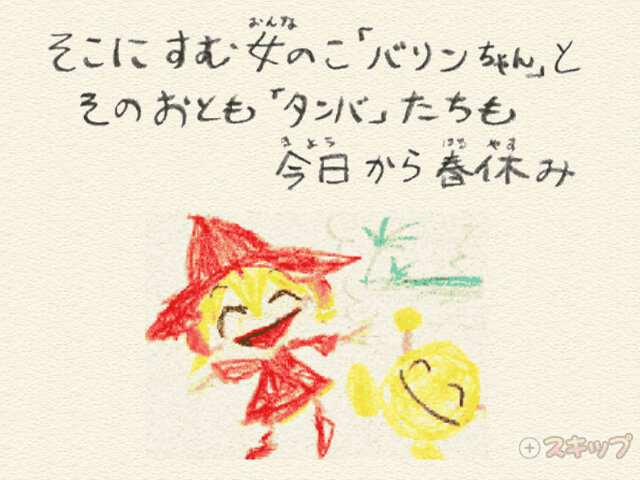 そこにすむ女のこ「バリンちゃん」と
おんな
そのおとも「タンバ」たちも
今日から春休み
きょう はる やす
スキップ